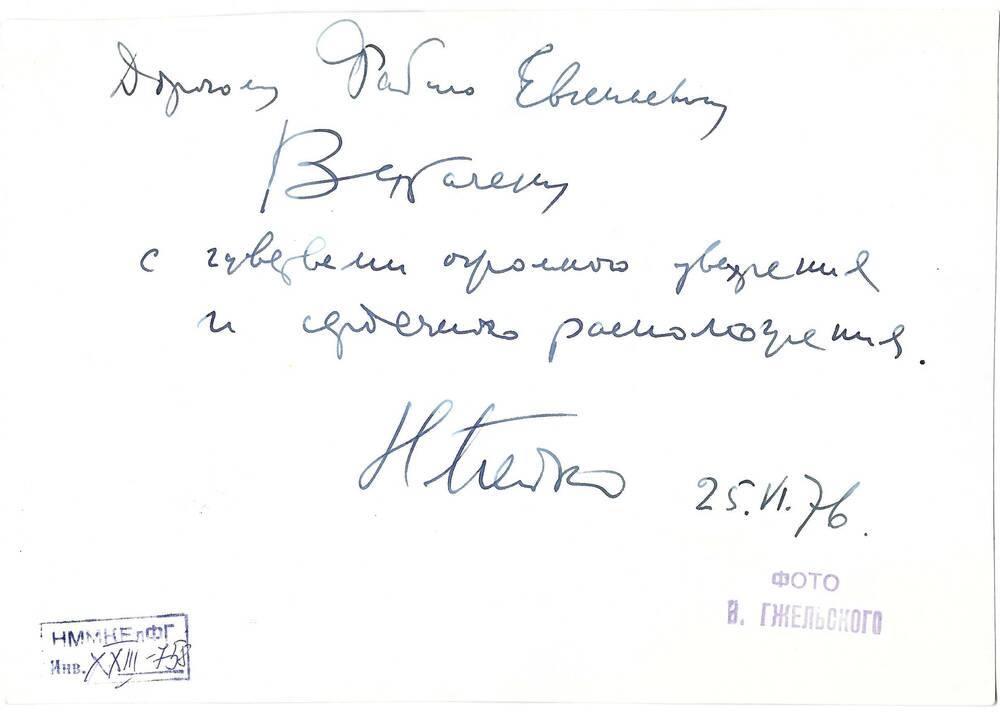 Дорогому Фабию Евгеньевичу
Витачеку
с чувствами огромного уважения
и сердечного расположения.
НПейко 25.VI.76.
ФОТО
В. ГЖЕЛЬСКОГО
НММКЕлФГ
Инв. XXIII-758